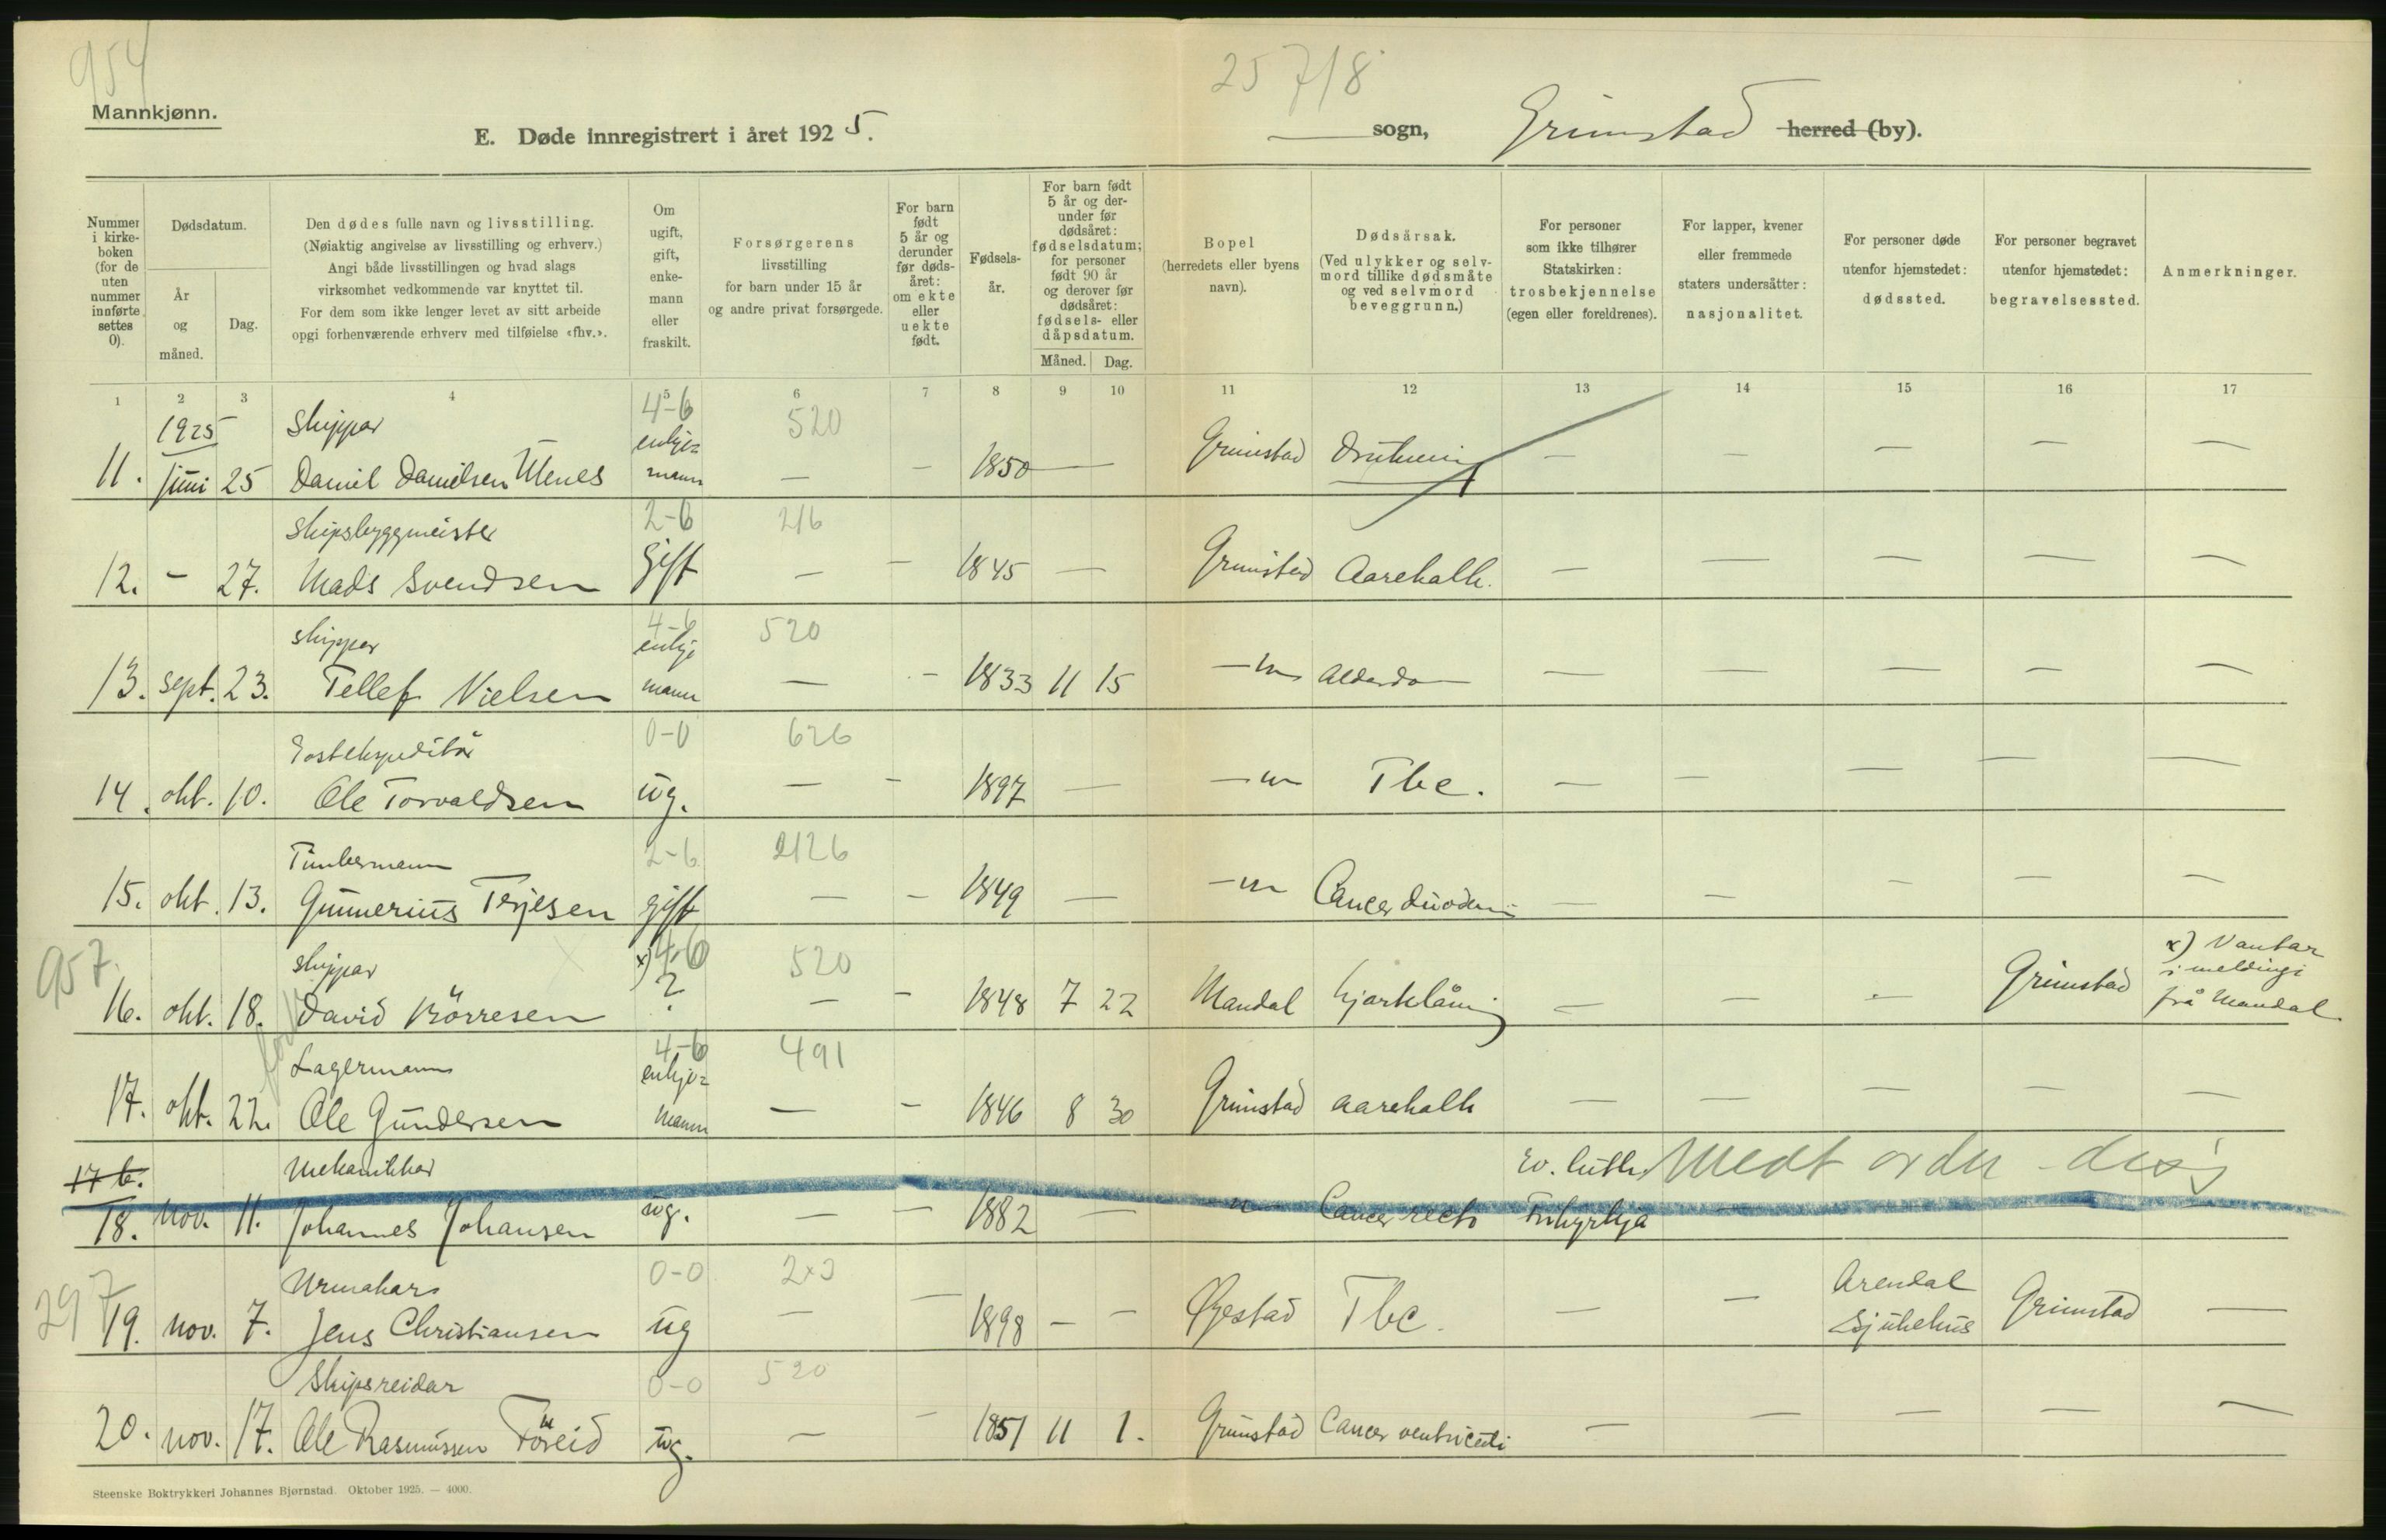 954
25 7/8
Mannkjønn.
E. Døde innregistrert i året 1925.
sogn, Grimstad herred (by).
Nummer i kirkeboken (for de uten nummer innførte settes 0).
Dødsdatum.
År og måned.
Dag.
Den dødes fulle navn og livsstilling.
(Nøiaktig angivelse av livsstilling og erhverv.)
Angi både livsstillingen og hvad slags
virksomhet vedkommende var knyttet til.
For dem som ikke lenger levet av sitt arbeide
opgi forhenværende erhverv med tilføielse «fhv.».
Om ugift, gift, enkemann eller fraskilt.
Forsørgerens
livsstilling
for barn under 15 år
og andre privat forsørgede.
For barn født 5 år og derunder før dødsåret: om ekte eller uekte født.
Fødselsår.
For barn født 5 år og derunder før dødsåret: fødselsdatum; for personer født 90 år og derover før dødsåret: fødsels- eller dåpsdatum.
Måned. Dag.
Bopel
(herredets eller byens
navn).
Dødsårsak.
(Ved ulykker og selvmord tillike dødsmåte og ved selvmord beveggrunn.)
For personer
som ikke tilhører
Statskirken:
trosbekjennelse
(egen eller foreldrenes).
For lapper, kvener
eller fremmede
staters undersåtter:
nasjonalitet.
For personer døde
utenfor hjemstedet:
dødssted.
For personer begravet
utenfor hjemstedet:
begravelsessted.
Anmerkninger.
1 2 3 4 5 6 7 8 9 10 11 12 13 14 15 16 17
1925 Skippar 4-6 enkje- 520
11. juni 25 Daniel Danielsen mann — — 1850 — Grimstad — — — — —
Skipsbyggmeister 2-6 216
12. - 27. Mads Svendsen gift — — 1845 — Grimstad Aarekalk. — — — — —
skipper 4-6 enkje 520
13. sept. 23. Tellef Nielsen mann — - 1833 11 15 —"— Alderdom — — — — —
Postekspeditør 0-0 626
14. okt. 10. Ole Torvaldsen ug. — - 1897 — —"— Tbc. — — — — —
Timbermann 2-6 2126
15. okt. 13. Gunnerius Terjesen gift — - 1849 — —"— Cancer duodeni — — — — —
957. skippar x) 4-6 520 x) Vantar
16. okt. 18. David Börresen ? — - 1848 7 22 Mandal hjarklåming — — — Grimstad i meldingi frå Mandal
Lagermann 4-6 enkje- 491
17. okt. 22. Ole Gundersen mann — - 1846 8 30 Grimstad aarekalk — — — — —
17 b. Mekanikkar ev. luth.
18. nov. 11. Johannes Johansen ug. — — 1882 — —"— Cancer recti Frikyrkja —
297 Urmakar 0-0 2x3 Arendal
19. nov. 7. Jens Christiansen ug — — 1898 — — Øyestad Tbc. — — Sjukehus Grimstad —
Skipsreidar 0-0 520
20. nov. 17. Ole Rasmussen ug. — - 1851 11 1. Grimstad Cancer ventriculi — — — — —
Steenske Boktrykkeri Johannes Bjørnstad. Oktober 1925. — 4000.